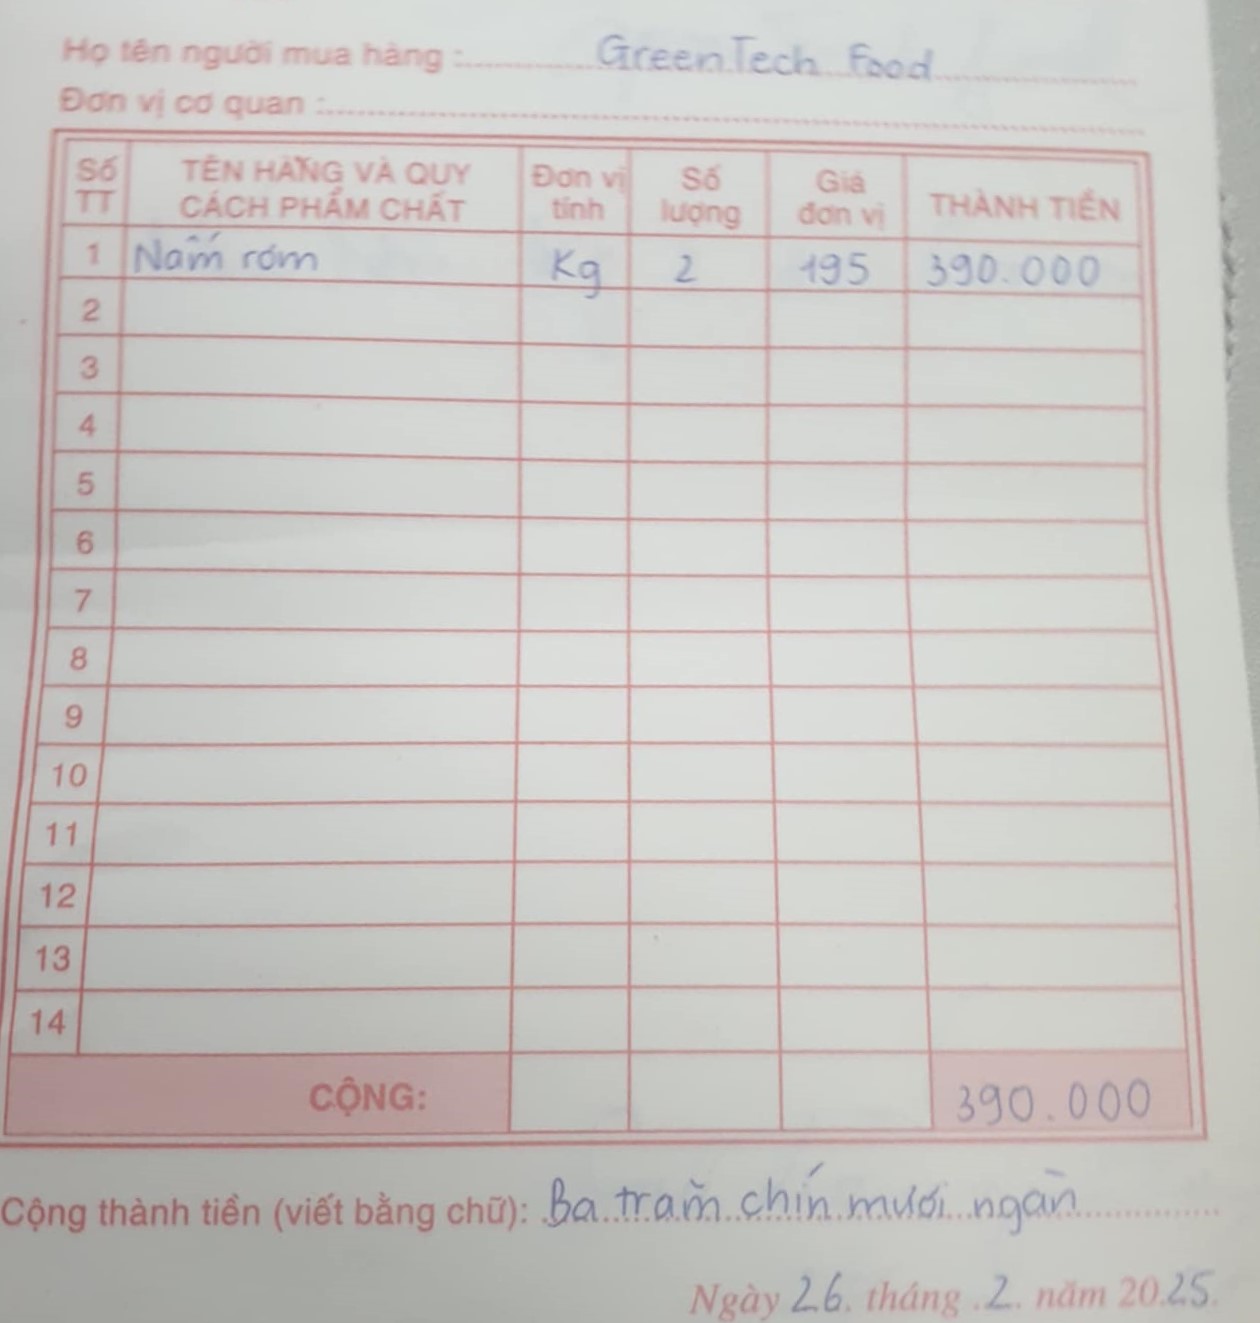 Họ tên người mua hàng : GreenTech Food
Đơn vị cơ quan :
Số TT TÊN HÀNG VÀ QUY CÁCH PHẨM CHẤT Đơn vị tính Số lượng Giá đơn vị THÀNH TIỀN
1 Nấm rơm Kg 2 195 390.000
2
3
4
5
6
7
8
9
10
11
12
13
14
CỘNG: 390.000
Cộng thành tiền (viết bằng chữ): Ba trăm chín mươi ngàn
Ngày 26. tháng .2. năm 20.25.